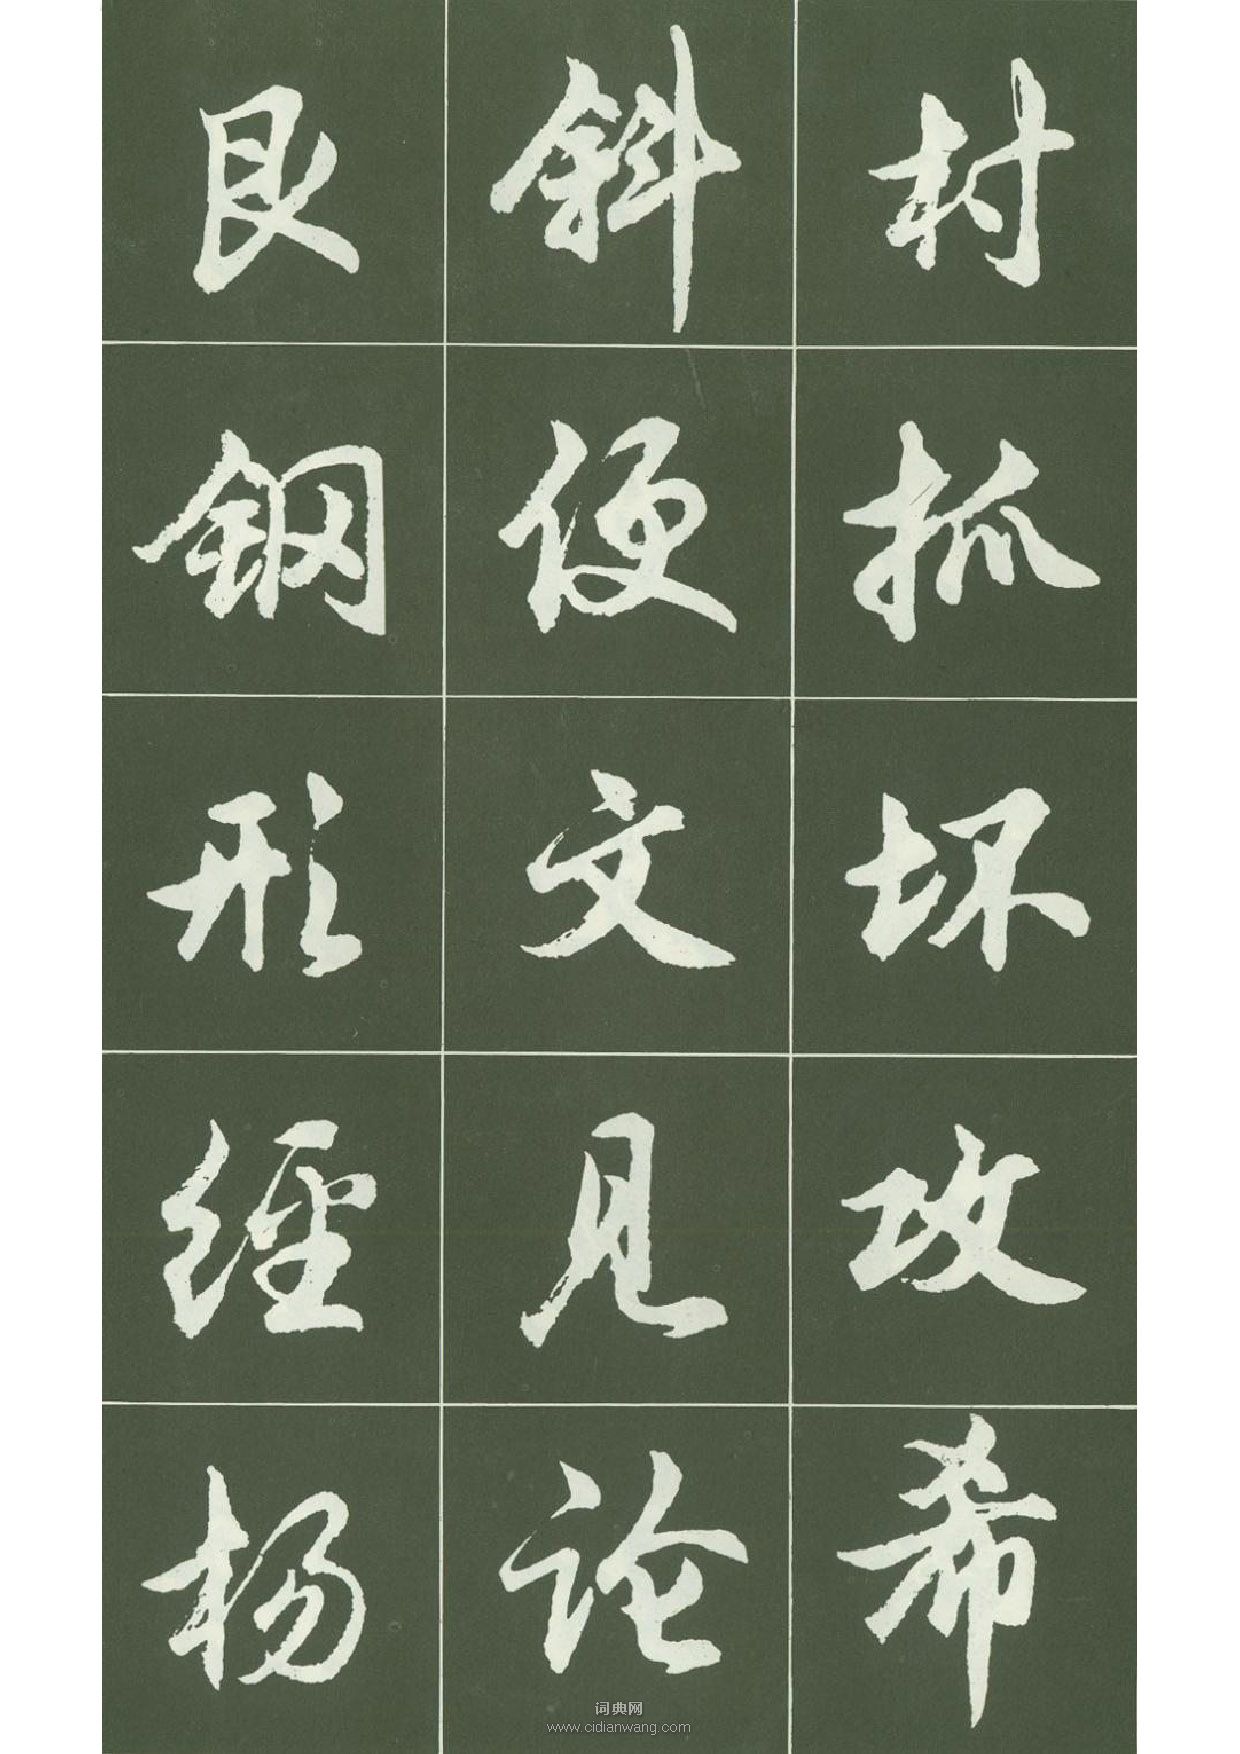 村抓坏攻希
斜便文见论
艮钢形经杨
词典网
www.cidianwang.com